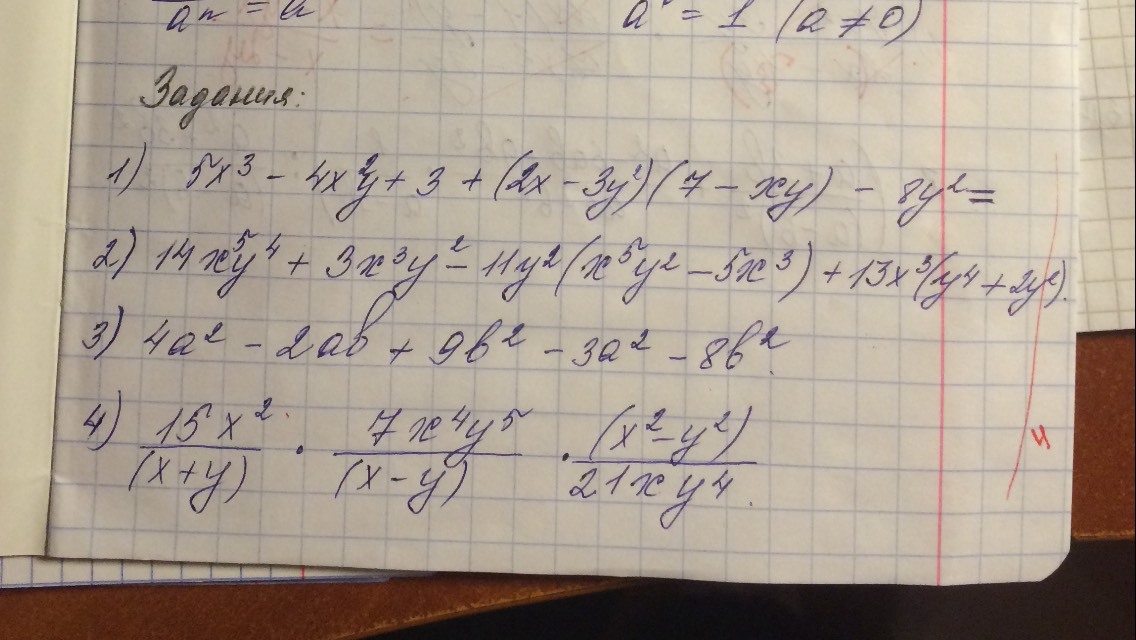 aⁿ = a
a⁰ = 1 (a ≠ 0)
Задания:
1) 5x³ - 4x²y + 3 + (2x - 3y²)(7 - xy) - 8y² =
2) 14x⁵y⁴ + 3x³y² - 11y²(x⁵y² - 5x³) + 13x³(y⁴ + 2y²).
3) 4a² - 2ab + 9b² - 3a² - 8b².
4) 15x²/(x+y) · 7x⁴y⁵/(x-y) · (x²-y²)/21xy⁴.